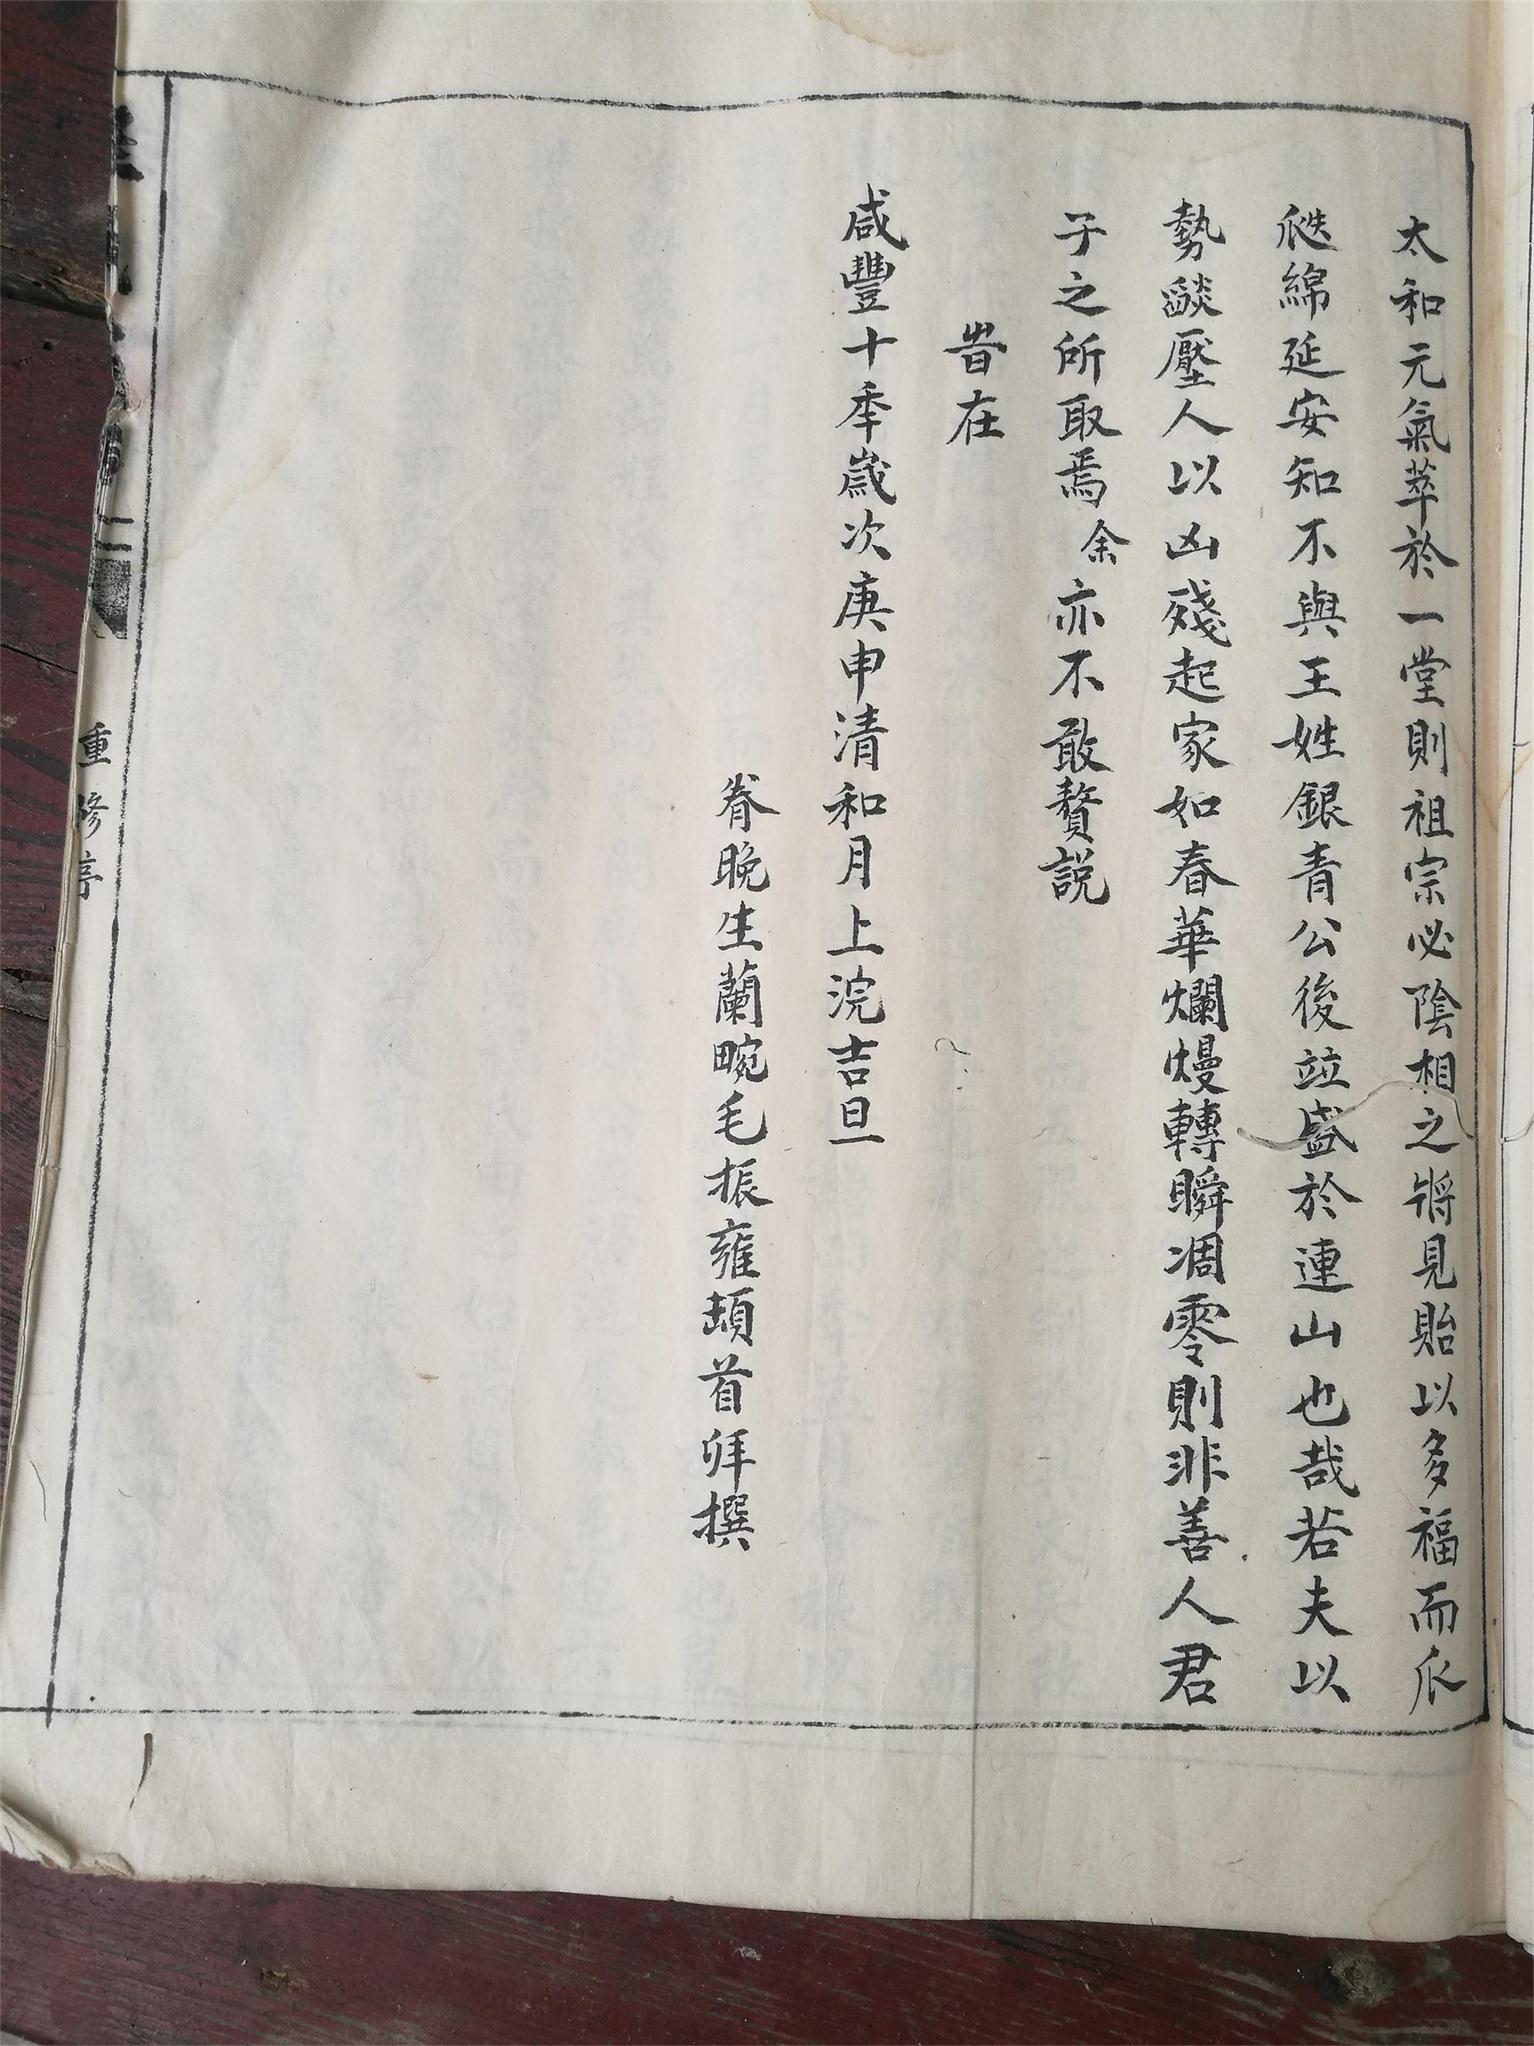 太和元氣萃於一堂則祖宗必陰相之將見貽以多福而瓜
瓞綿延安知不與王姓銀青公後竝盛於連山也哉若夫以
勢燄壓人以凶殘起家如春華爛熳轉瞬凋零則非善人君
子之所取焉余亦不敢贅説
旹在
咸豐十季歲次庚申清和月上浣吉旦
眷晚生蘭畹毛振雍頓首拜撰
重修序